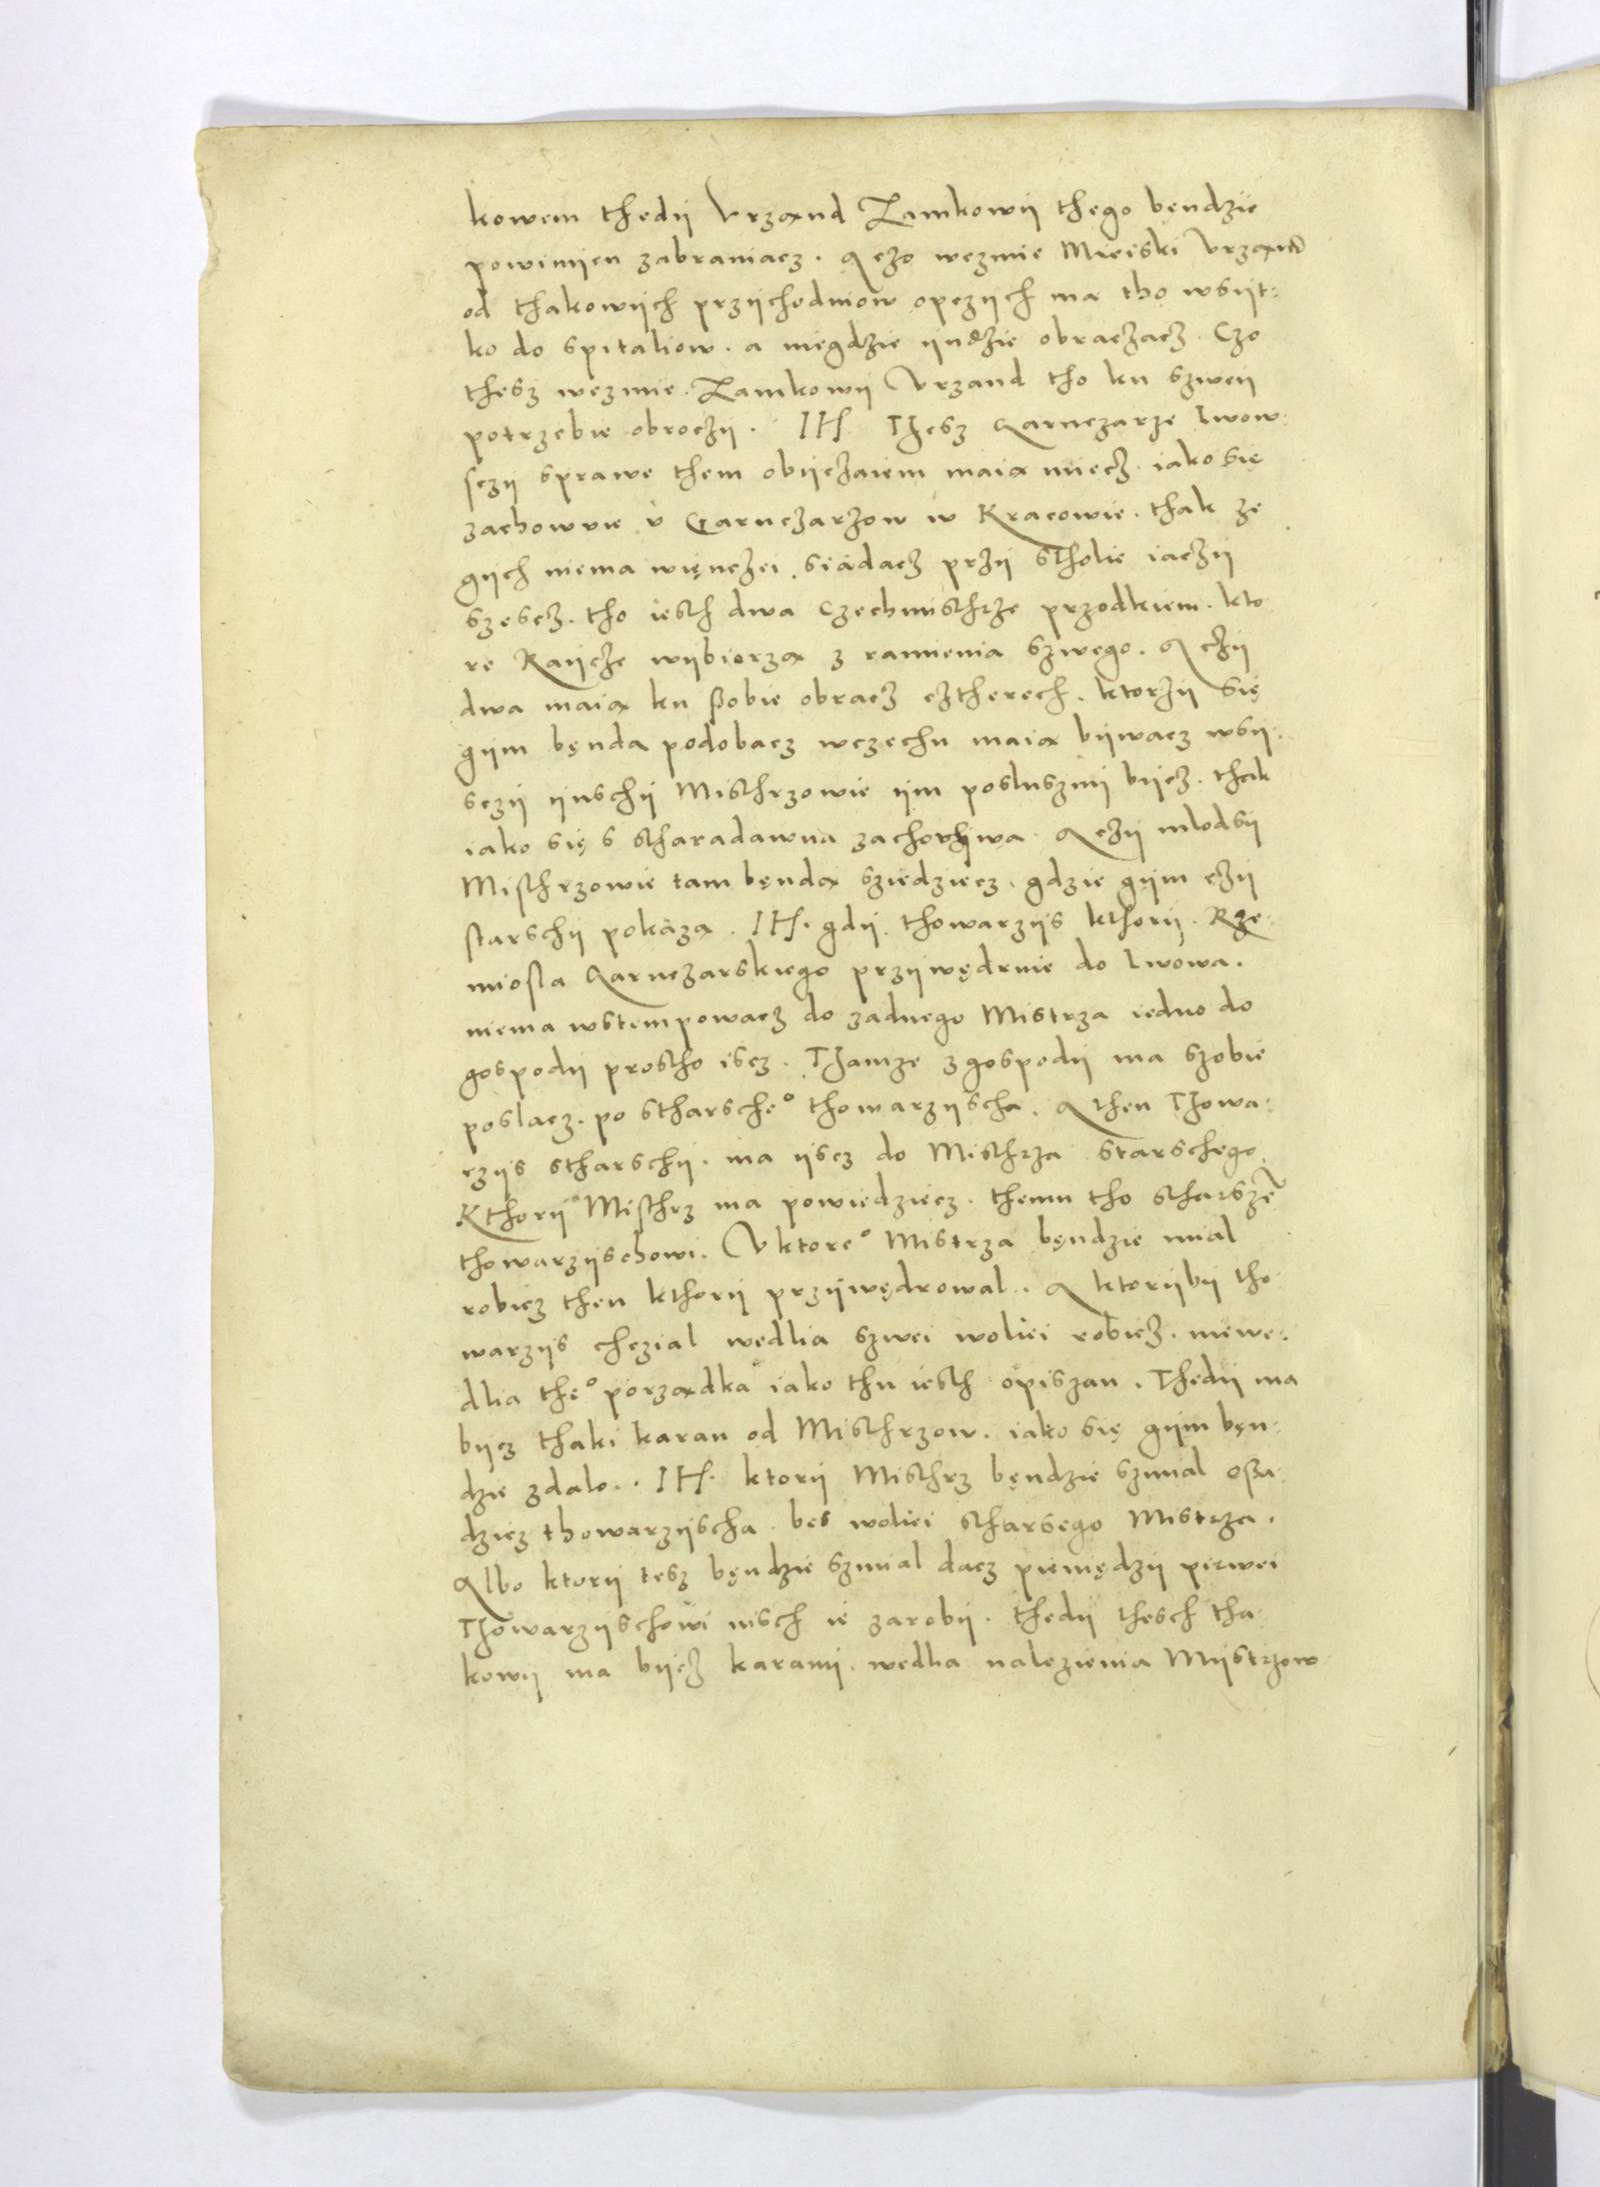 kowem thedij Vrząnd Zamkowij thego bęndzie
powinijen zabraniacz. A czo wezmie Mieiski Vrząnd
od thakowijch przijchodniow opczijch ma tho wsijt-
ko do spitaliow. a niegdzie ijndzie obraczacz. Czo
thesz wezmie Zamkowij Vrzand tho ku szweij
potrzebie obroczij. Ith. Thesz Garnczarze Lwow-
sczij sprawe them obijczaiem maią miecz. iako się
zachowuie v Garnczarzow w Kracowie. thak ze
gijch niema więnczei siadacz przij stholie iaczij
szescz. tho iesth dwa Czechmisthrze przodkiem. kto
re Raijcze wijbiorzą z ramienia szwego. A czij
dwa maią ku ßobie obracz cztherech. ktorzij się
gijm bęndą podobacz wczechu maią bijwacz wsij-
sczij ijnschij Misthrzowie ijm posluszni bijcz. thak
iako się s stharadawna zachowijwa. A czij mlodsij
Misthrzowie tam bęndą sziedziecz. gdzie gijm czij
starschij pokażą. Ith. gdij thowarzijs kthorij Rze-
miosla Garnczarskiego przijwędruie do Lwowa.
niema wstempowacz do zadnego Mistrza iedno do
gospodij prostho iscz. Thamze z gospodij ma szobie
poslacz. po stharscheº thowarzijscha. A then Thowa-
rzijs stharschij. ma ijscz do Misthrza starschego.
Kthorij Misthrz ma powiedziecz. themu tho stharszeº
thowarzijschowi. V ktoreº Mistrza bęndzie mial
robicz then kthorij przijwędrowal. A ktorijbij tho
warzijs chczial wedlia szwei woliei robicz. niewe-
dlia theº porządka iako thu iesth opiszan. Thedij ma
bijcz thaki karan od Misthrzow. iako się gijm bęn-
dzie zdalo. Ith. ktorij Misthrz bęndzie szmial oßa-
dzicz thowarzijscha. bes woliei stharsego Mistrza.
Albo ktorij tesz bęndzie szmial dacz pieniędzij pirwei
Thowarzijschowi nisch ie zarobij. thedij thesch tha-
kowij ma bijcz karanij. wedlia nalezienia Mijstrzow